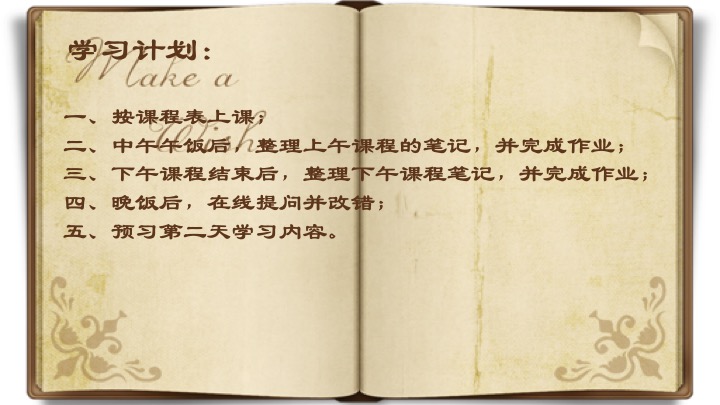 学习计划：
Make a
Wish
一、按课程表上课；
二、中午午饭后，整理上午课程的笔记，并完成作业；
三、下午课程结束后，整理下午课程笔记，并完成作业；
四、晚饭后，在线提问并改错；
五、预习第二天学习内容。